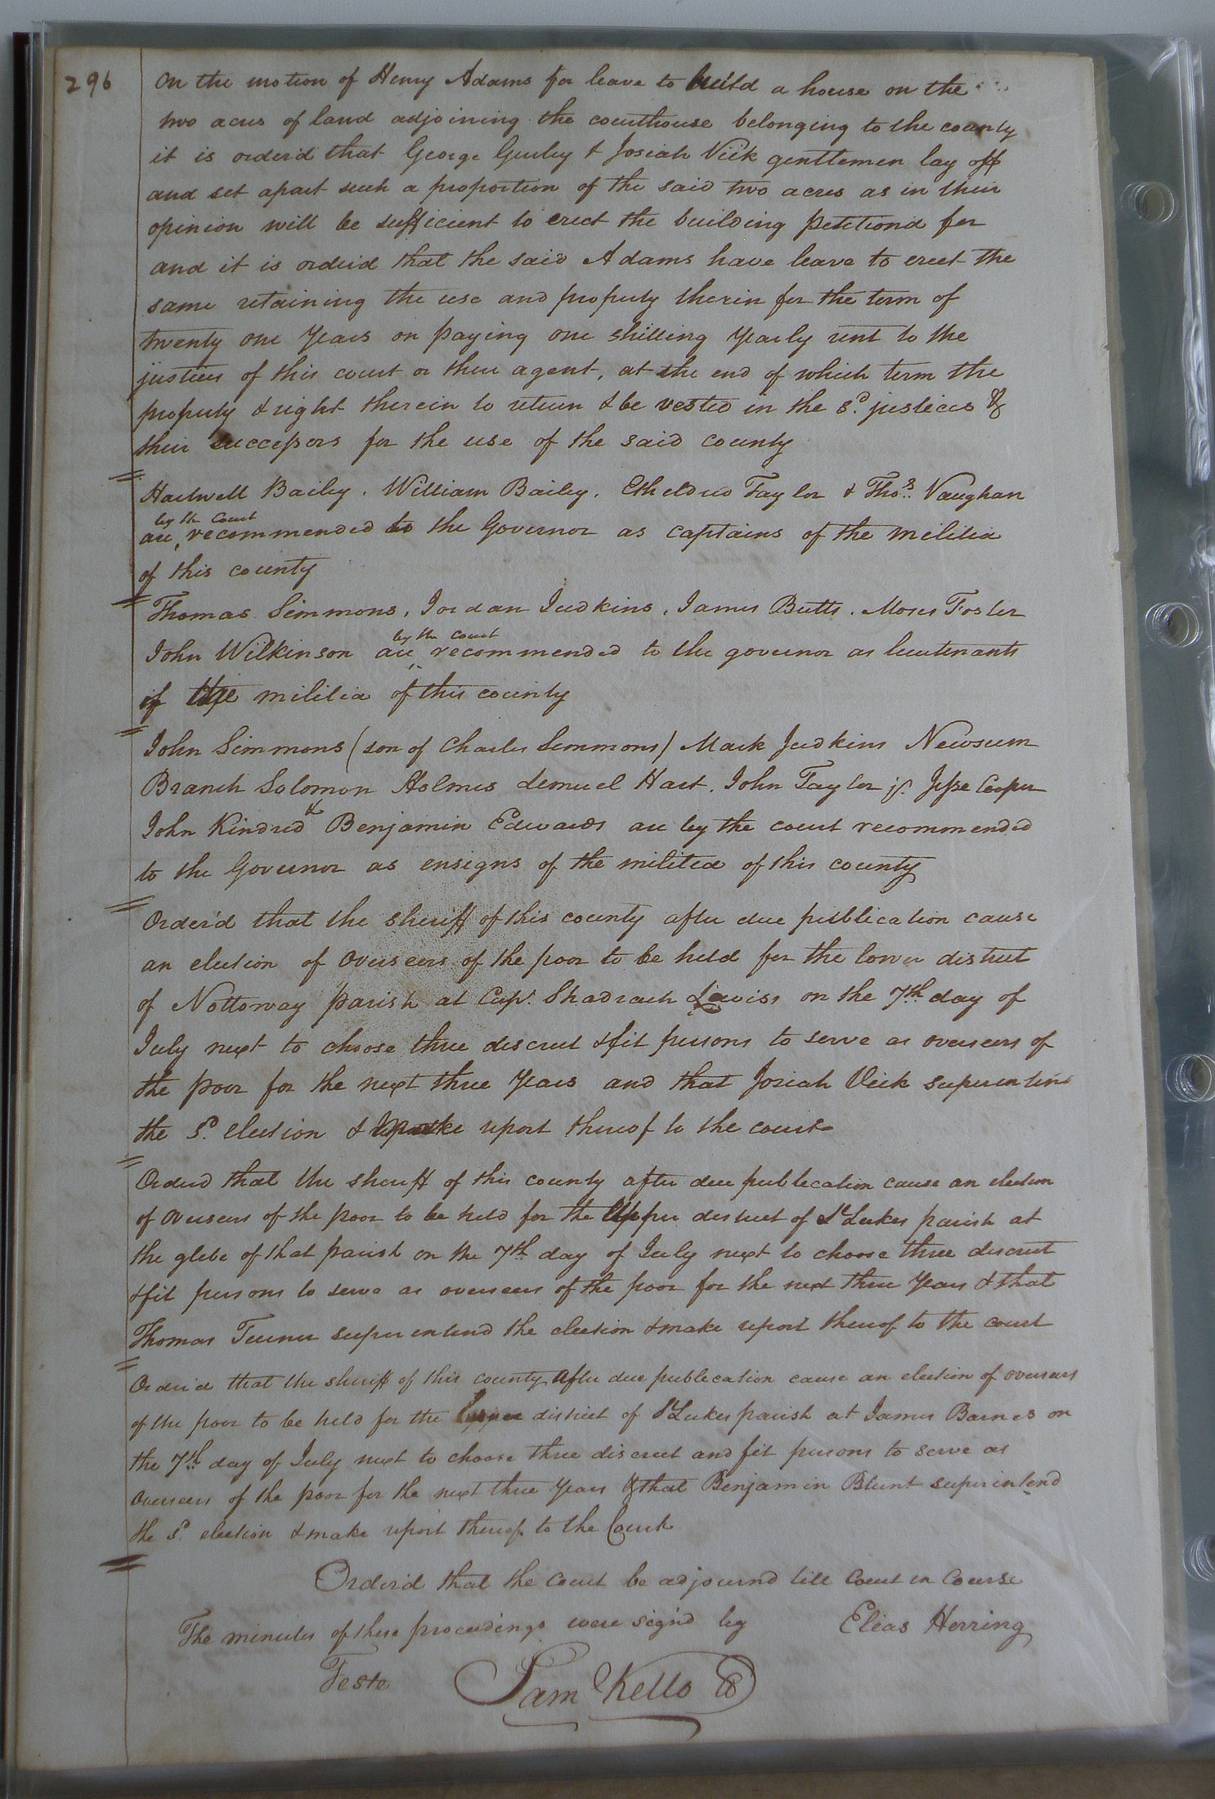 296
On the motion of Henry Adams for leave to build a house on the
two acres of land adjoining the courthouse belonging to the county
it is order'd that George Gurley & Josiah Vick gentlemen lay off
and set apart such a proportion of the said two acres as in their
opinion will be sufficient to erect the building petitiond for
and it is orderd that the said Adams have leave to erect the
same retaining the use and property therin for the term of
twenty one Years on paying one shilling Yearly rent to the
justices of this court or their agent, at the end of which term the
property & right therein to return & be vested in the sd. justices &
their successors for the use of the said county
Hartwell Bailey. William Bailey. Etheldred Taylor & Thos. Vaughan
by the Court
are recommended to the Governor as captains of the militia
of this county
Thomas Simmons, Jordan Judkins, James Butts, Moses Foster
by the Court
John Wilkinson are recommended to the governor as lieutenants
of the militia of this county
John Simmons (son of Charles Simmons) Mark Judkins Newsum
Branch Solomon Holmes Lemuel Hart. John Taylor jr. Jesse Cooper
John Kindred & Benjamin Edwards are by the court recommended
to the Governor as ensigns of the militia of this county
Order'd that the sheriff of this county after due publication cause
an election of Overseers of the poor to be held for the lower district
of Nottoway parish at Capt. Shadrach Lewiss on the 7th day of
July next to choose three discreet & fit persons to serve as overseers of
the poor for the next three Years and that Josiah Vick superintend
the sd. election & make report thereof to the court
Orderd that the sheriff of this county after due publication cause an election
of Overseers of the poor to be held for the Upper district of St Lukes parish at
the glebe of that parish on the 7th day of July next to choose three discreet
& fit persons to serve as overseers of the poor for the next three Years & that
Thomas Turner superintend the election & make report thereof to the court
Order'd that the sheriff of this county after due publication cause an election of overseers
of the poor to be held for the district of St Lukes parish at James Barnes on
the 7th day of July next to choose three discreet and fit persons to serve as
Overseers of the poor for the next three Years & that Benjamin Blunt superintend
the sd. election & make report thereof to the Court
Order'd that the Court be adjournd till Court in Course
The minutes of these proceedings were sign'd by Elias Herring
Teste Sam Kello